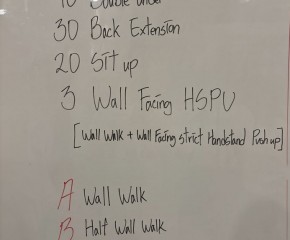 10 Double Under
30 Back Extension
20 Sit up
3 Wall Facing HSPU
[Wall Walk + Wall Facing strict Handstand Push up]
A Wall Walk
B Half Wall Walk